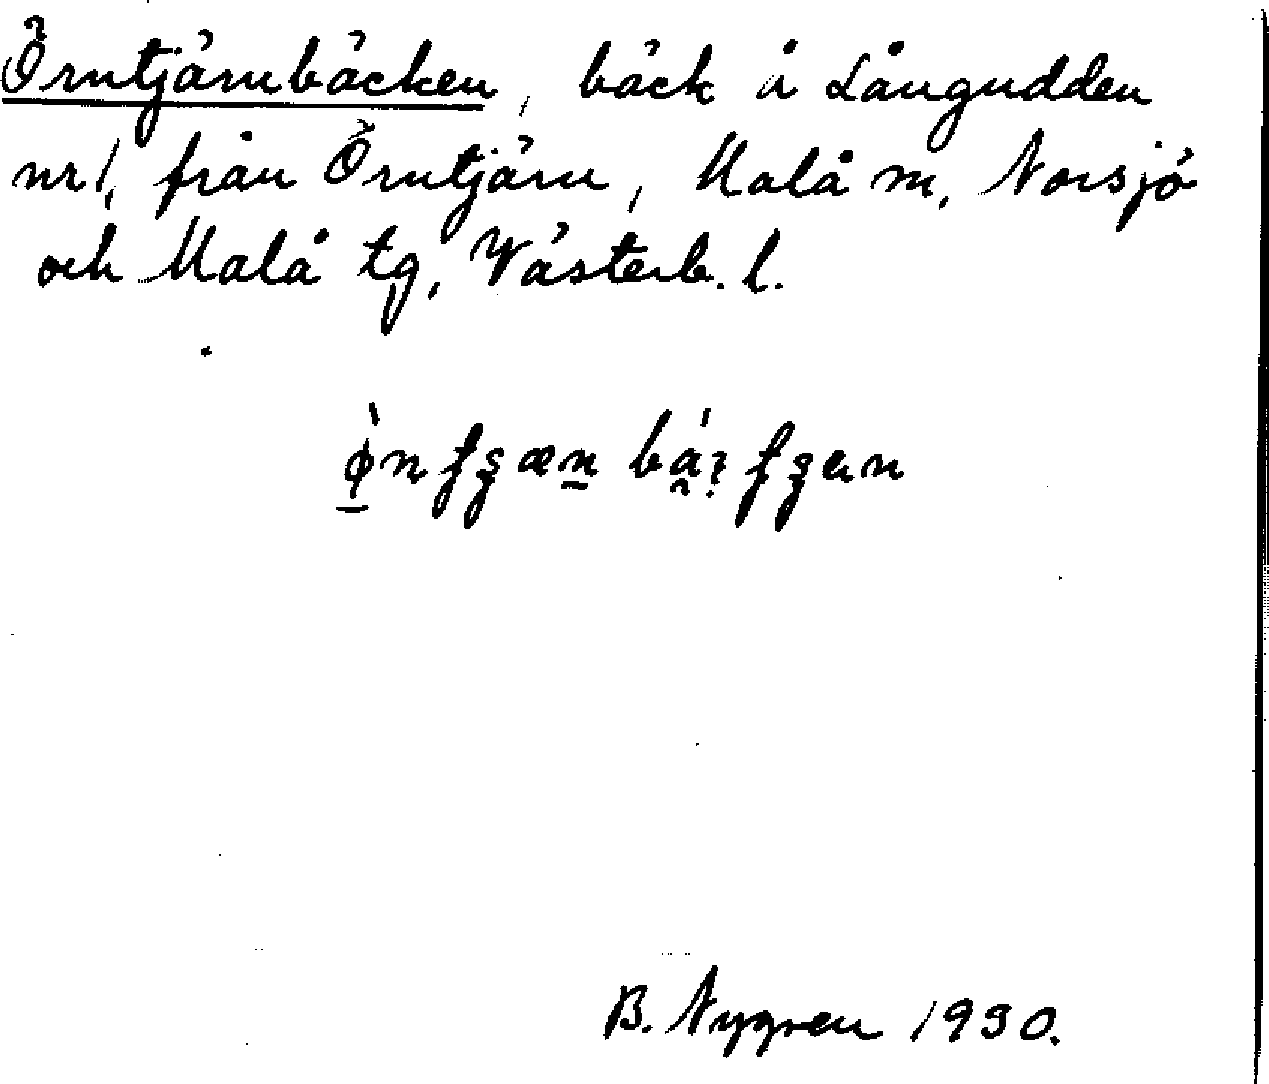 Örntjärnbäcken, bäck å Långudden
nr 1, från Örntjärn, Malå sn, Norsjö
och Malå tg, Västerb. l.
B. Nygren 1930.